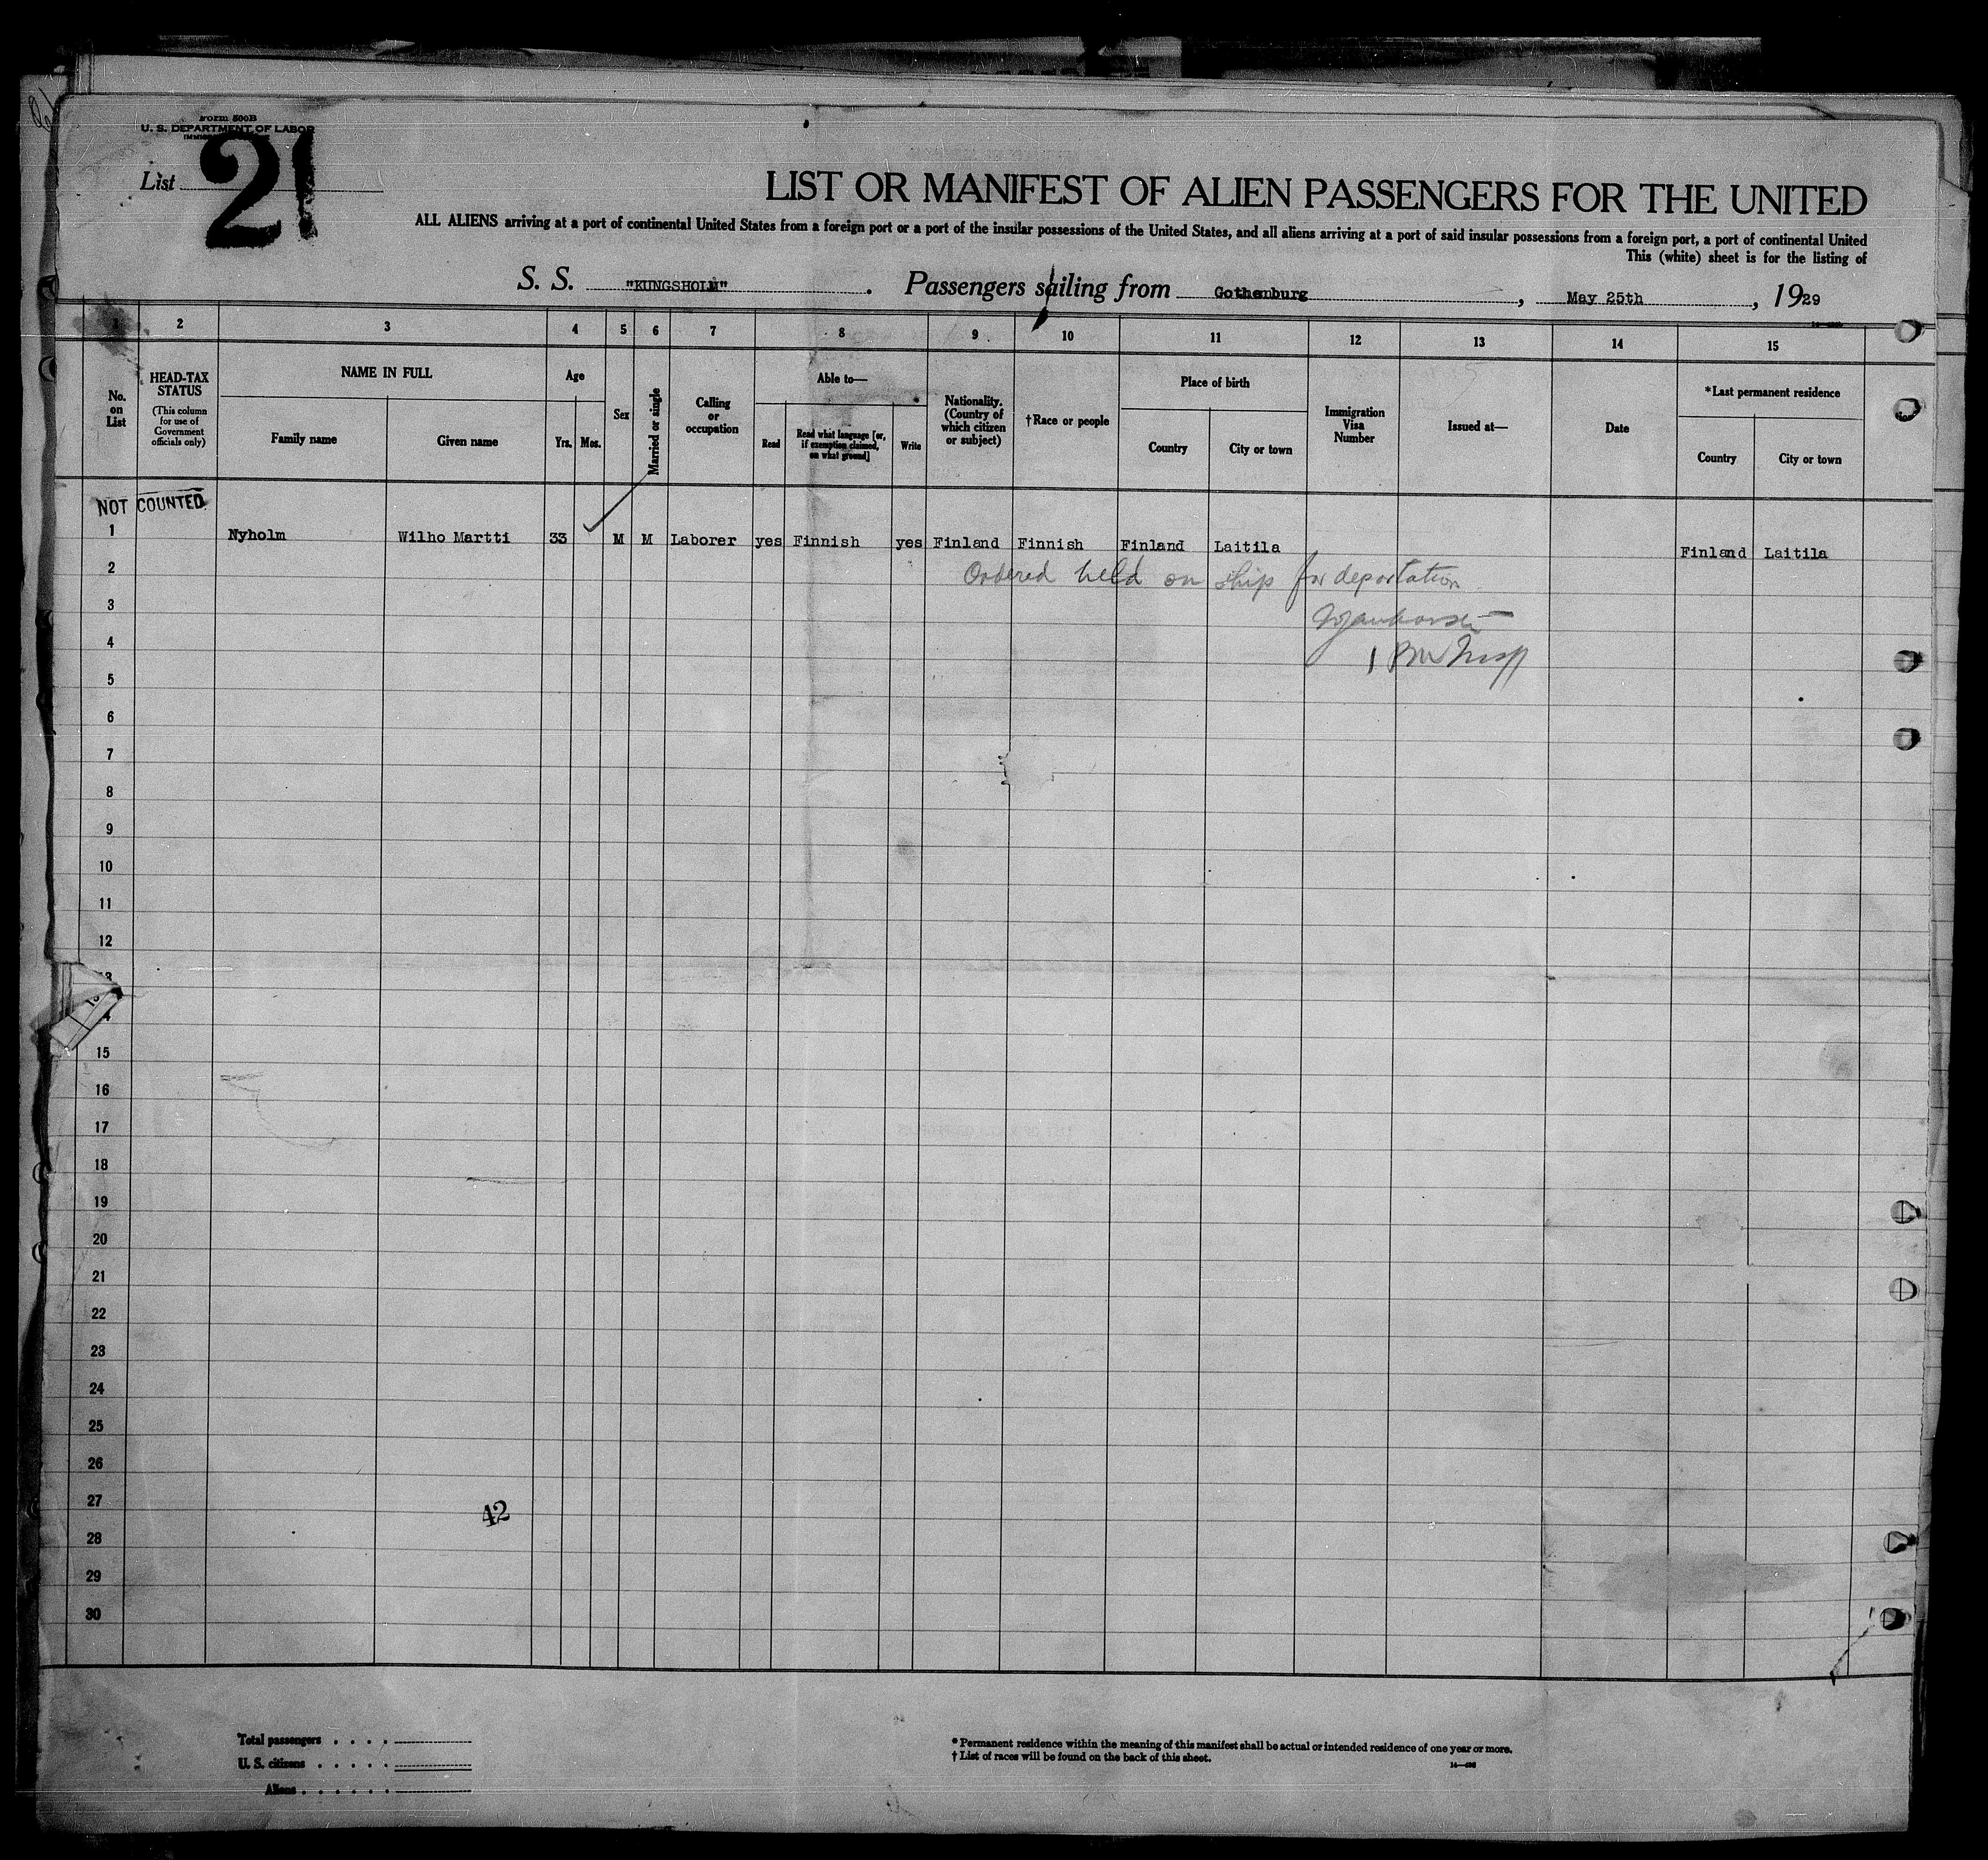 Form 500B
U. S. DEPARTMENT OF LABOR
List 21
LIST OR MANIFEST OF ALIEN PASSENGERS FOR THE UNITED
ALL ALIENS arriving at a port of continental United States from a foreign port or a port of the insular possessions of the United States, and all aliens arriving at a port of said insular possessions from a foreign port, a port of continental United
This (white) sheet is for the listing of
S. S. "KUNGSHOLM". Passengers sailing from Gothenburg, May 25th, 1929
1 2 3 4 5 6 7 8 9 10 11 12 13 14 15
No. on List
HEAD-TAX STATUS
(This column for use of Government officials only)
NAME IN FULL
Family name
Given name
Age
Yrs. Mos.
Sex
Married or single
Calling or occupation
Able to—
Read
Read what language [or, if exemption claimed, on what ground]
Write
Nationality. (Country of which citizen or subject)
†Race or people
Place of birth
Country
City or town
Immigration Visa Number
Issued at—
Date
*Last permanent residence
Country
City or town
NOT COUNTED.
1 Nyholm Wilho Martti 33 M M Laborer yes Finnish yes Finland Finnish Finland Laitila Finland Laitila
2 Ordered held on ship for deportation
3
4
5
6
7
8
9
10
11
12
13
15
16
17
18
19
20
21
22
23
24
25
26
27
42
28
29
30
Total passengers . . . .
U. S. citizens . . . . .
Aliens . . . . . .
* Permanent residence within the meaning of this manifest shall be actual or intended residence of one year or more.
† List of races will be found on the back of this sheet.